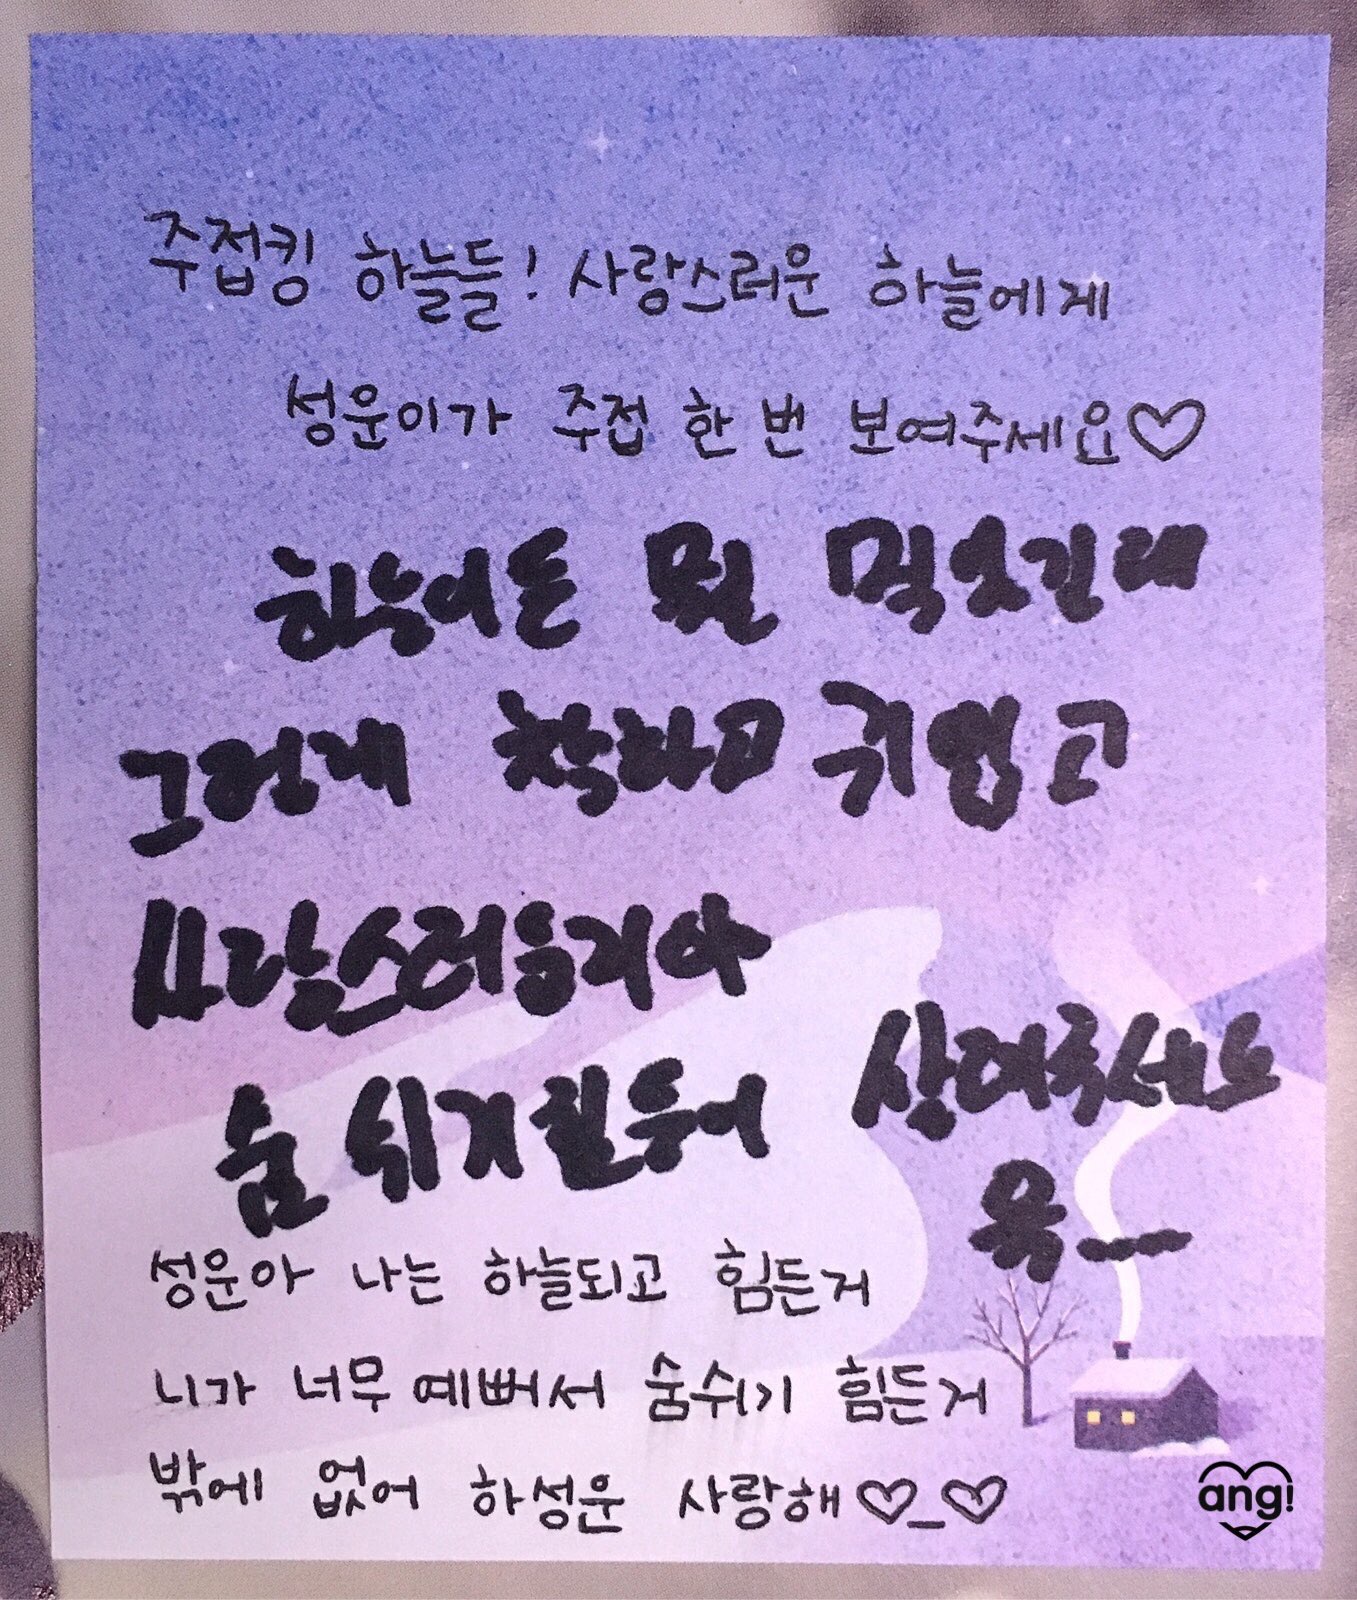 주접킹 하늘들! 사랑스러운 하늘에게
성운이가 주접 한 번 보여주세요♡
하늘이든 뭘 먹었길래
그렇게 착하고 귀엽고
사랑스러운거야
숨 쉬기 힘들어 살려주세요
성운아 나는 하늘되고 힘든거
니가 너무 예뻐서 숨쉬기 힘든거
밖에 없어 하성운 사랑해♡_♡
ang!